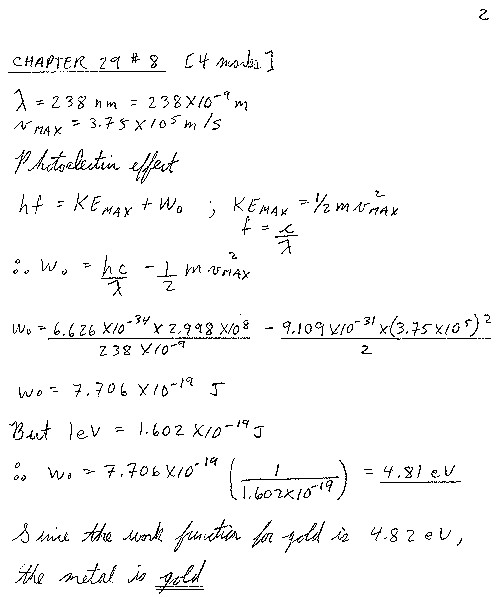 2
CHAPTER 29 # 8 [4 marks]
λ = 238 nm = 238 X10⁻⁹ m
v_MAX = 3.75 X 10⁵ m/s
Photoelectric effect
hf = KE_MAX + W₀ ; KE_MAX = 1/2 m v²_MAX
f = c/λ
∴ W₀ = hc/λ - 1/2 m v²_MAX
W₀ = 6.626 X10⁻³⁴ x 2.998 X10⁸ / 238 X10⁻⁹ - 9.109 X10⁻³¹ x (3.75 X 10⁵)² / 2
W₀ = 7.706 X10⁻¹⁹ J
But 1eV = 1.602 X10⁻¹⁹ J
∴ W₀ = 7.706 X10⁻¹⁹ (1 / 1.602X10⁻¹⁹) = 4.81 eV
Since the work function for gold is 4.82 eV,
the metal is gold